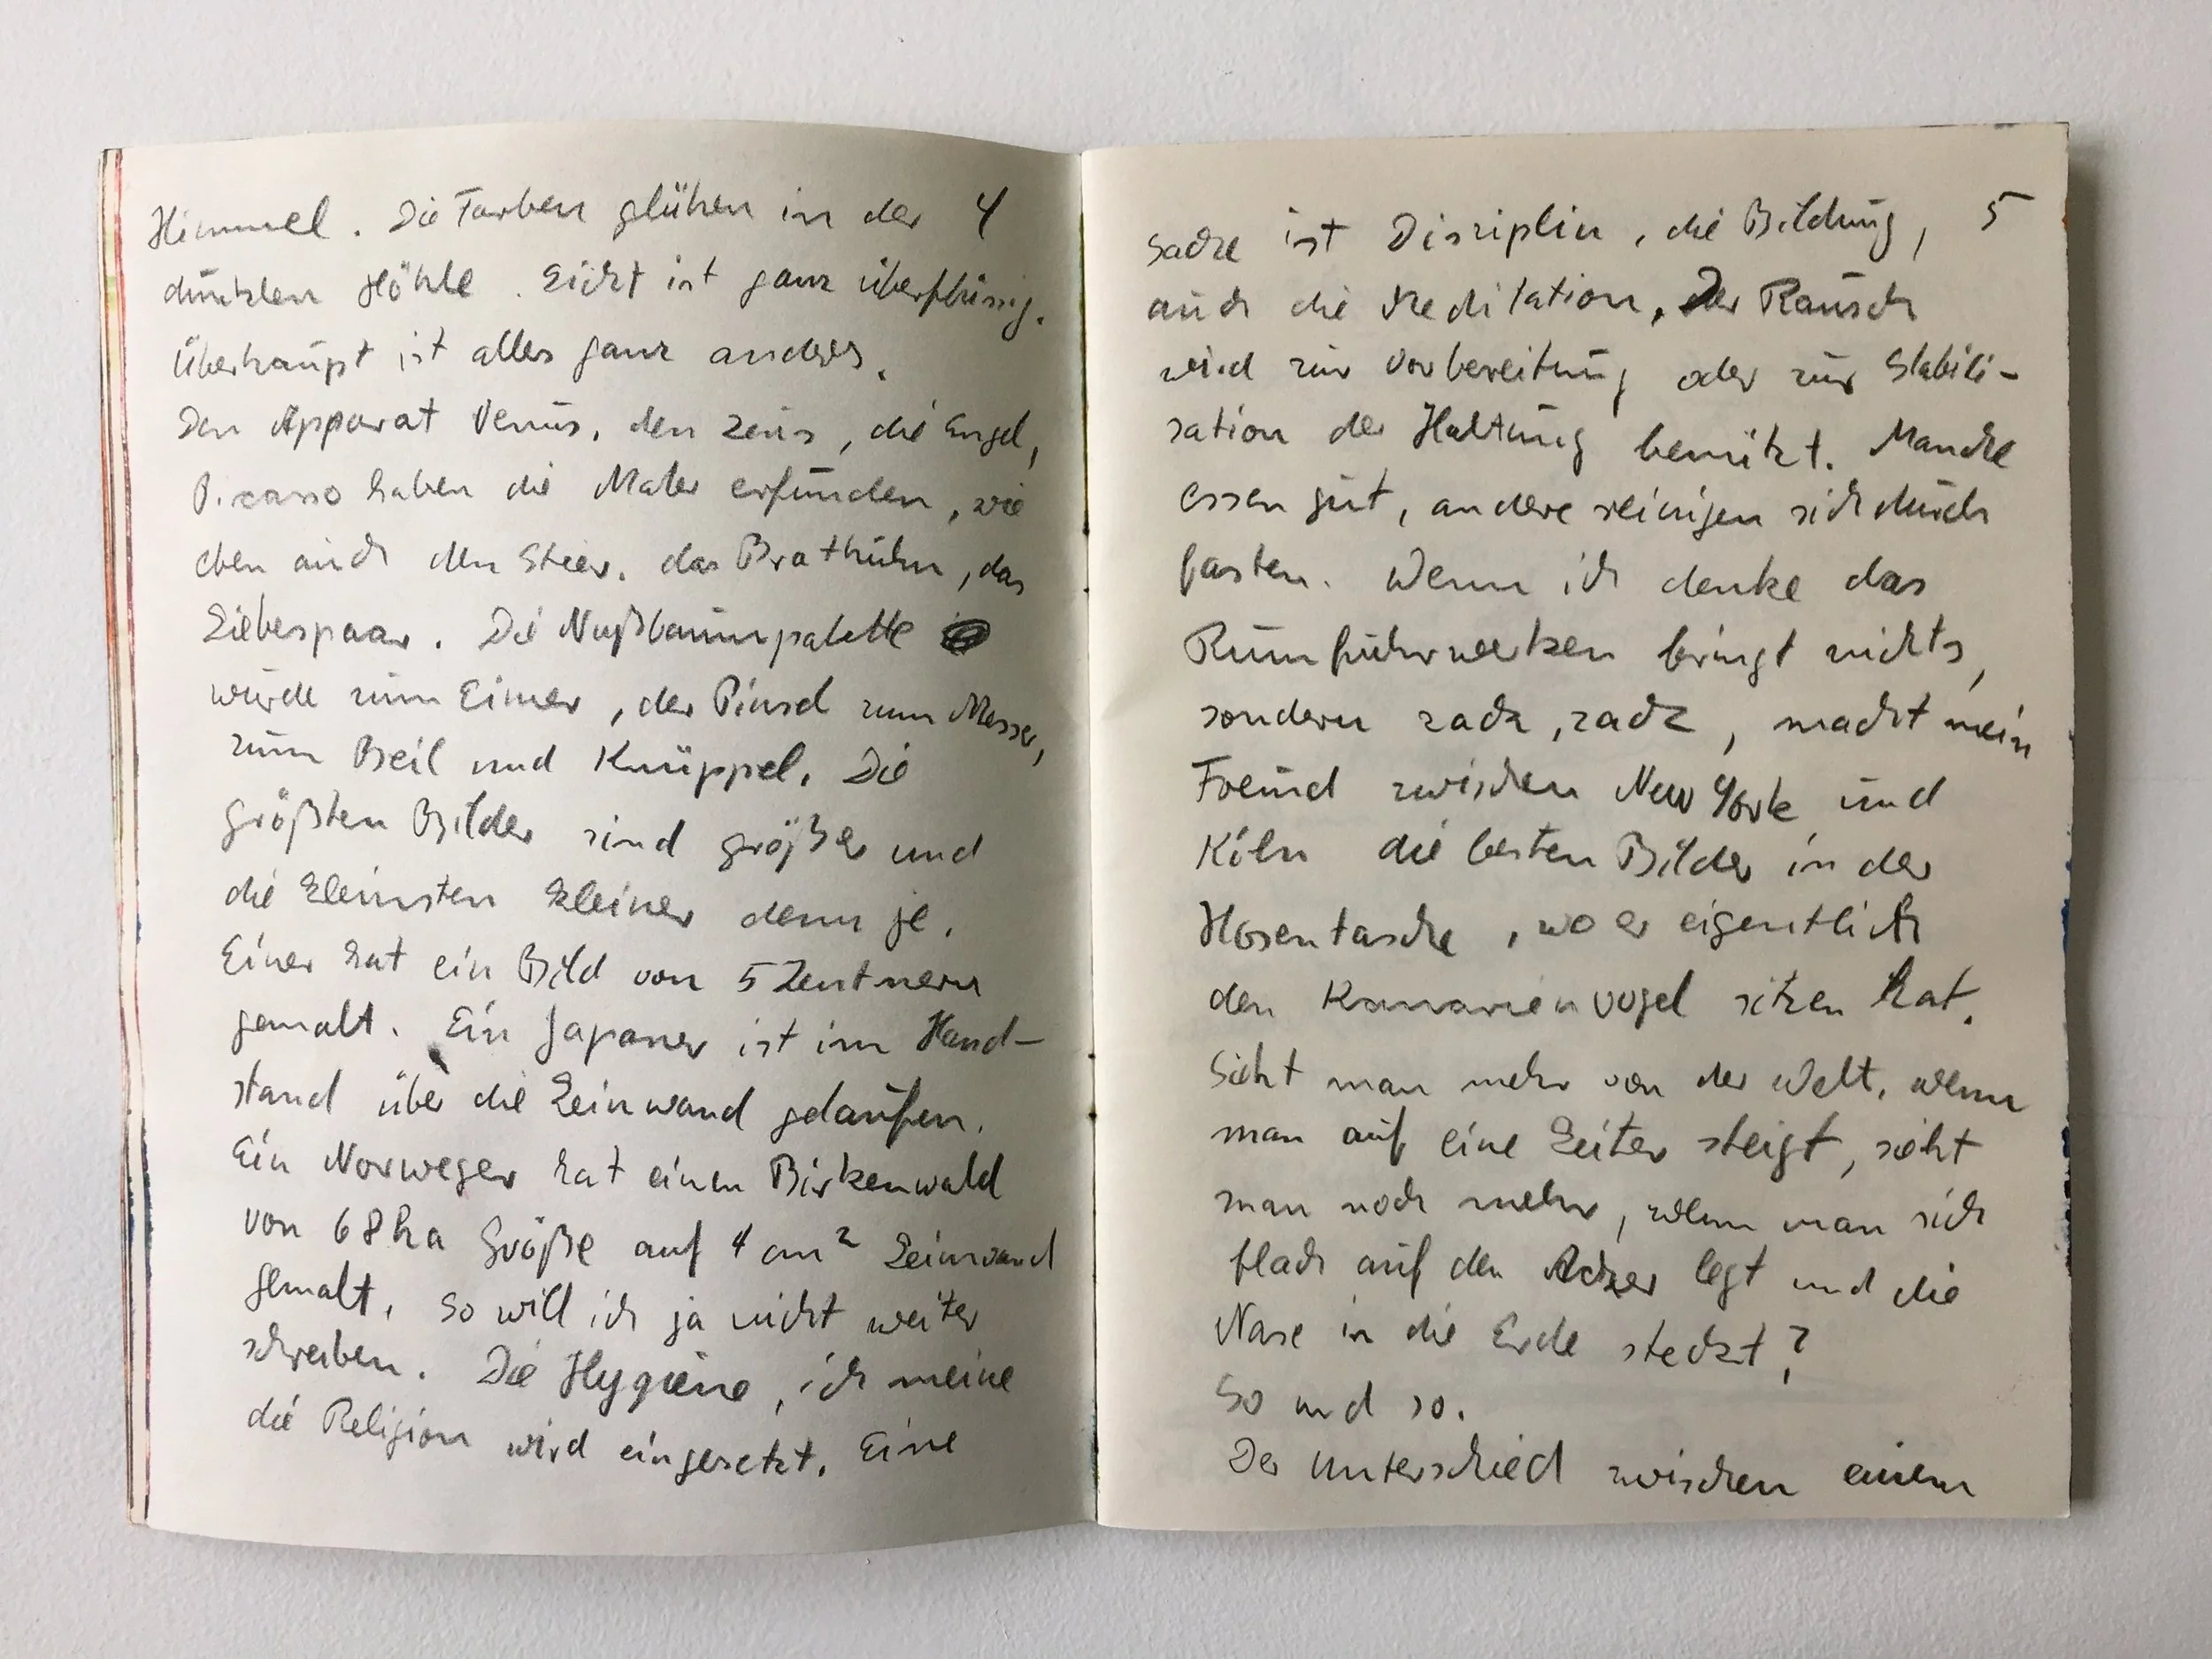 Himmel. Die Farben glühen in der 4
dunklen Höhle. Licht ist ganz überflüssig.
Überhaupt ist alles ganz anders.
Den Apparat Venus, den Zeus, die Engel,
Picasso haben die Maler erfunden, wie
eben auch den Stier, das Brathuhn, das
Liebespaar. Die Nußbaumpalette
wurde zum Eimer, der Pinsel zum Messer,
zum Beil und Knüppel. Die
größten Bilder sind größer und
die kleinsten kleiner denn je.
Einer hat ein Bild von 5 Zentnern
gemalt. Ein Japaner ist im Hand-
stand über die Leinwand gelaufen.
Ein Norweger hat einen Birkenwald
von 68 ha Größe auf 4 cm² Leinwand
gemalt. So will ich ja nicht weiter
schreiben. Die Hygiene, ich meine
die Religion wird eingesetzt. Eine
Sache ist Disziplin, die Bildung, 5
auch die Meditation. Der Rausch
wird zur Vorbereitung oder zur Stabili-
sation der Haltung benützt. Manche
essen gut, andere reinigen sich durch
fasten. Wenn ich denke das
Rumfuhrwerken bringt nichts,
sondern zack, zack, macht mein
Freund zwischen New York und
Köln die besten Bilder in der
Hosentasche, wo er eigentlich
den Kanarienvogel sitzen hat.
Sieht man mehr von der Welt, wenn
man auf eine Leiter steigt, sieht
man noch mehr, wenn man sich
flach auf den Acker legt und die
Nase in die Erde steckt?
So und so.
Der Unterschied zwischen einem